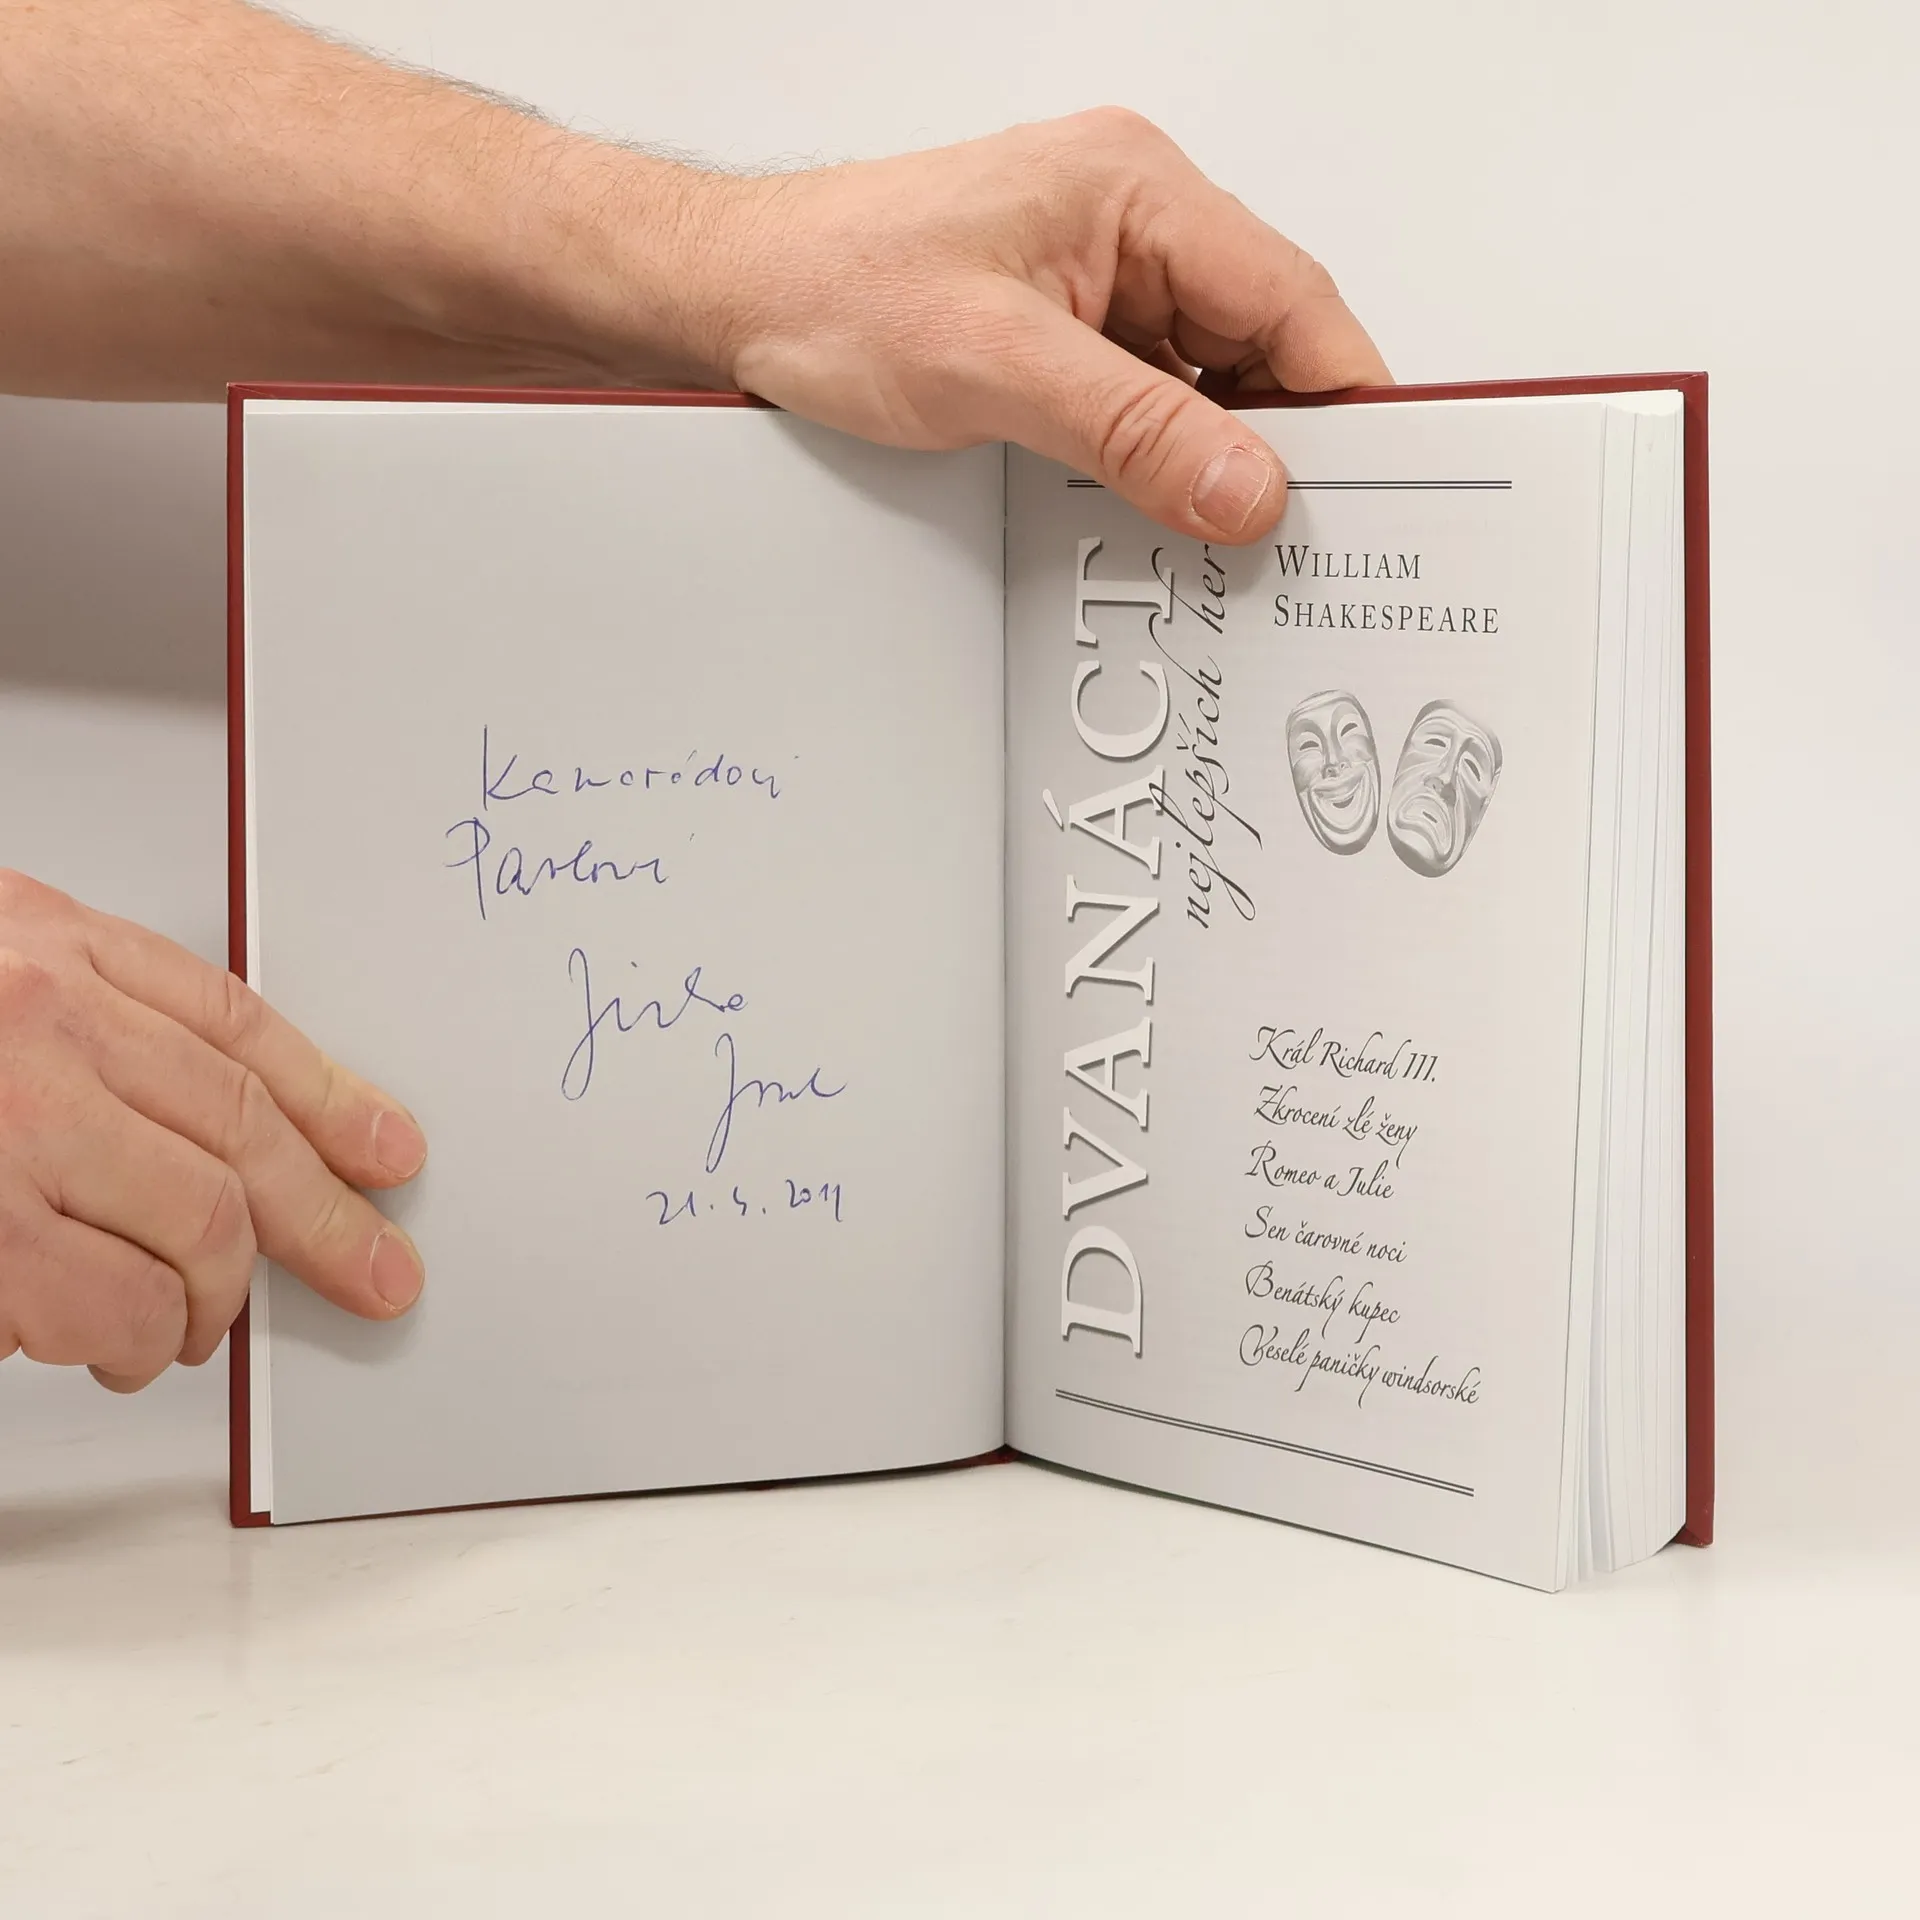 Kamarádovi
Pavlovi
Jirka
Josek
21. 5. 2011
DVANÁCT
nejlepších her
WILLIAM
SHAKESPEARE
Král Richard III.
Zkrocení zlé ženy
Romeo a Julie
Sen čarovné noci
Benátský kupec
Veselé paničky windsorské